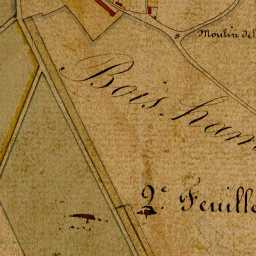 Moulin de
Bois ham
2.e Feuille